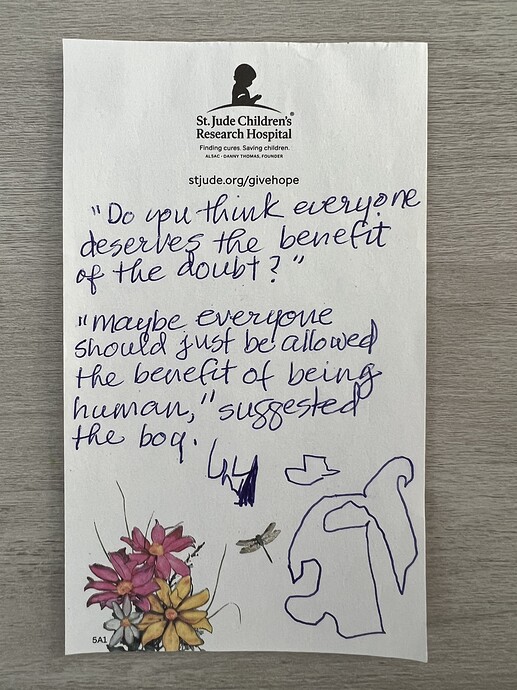 St. Jude Children's®
Research Hospital
Finding cures. Saving children.
ALSAC · DANNY THOMAS, FOUNDER
stjude.org/givehope
"Do you think everyone
deserves the benefit
of the doubt?"
"Maybe everyone
should just be allowed
the benefit of being
human," suggested
the boy.
5A1